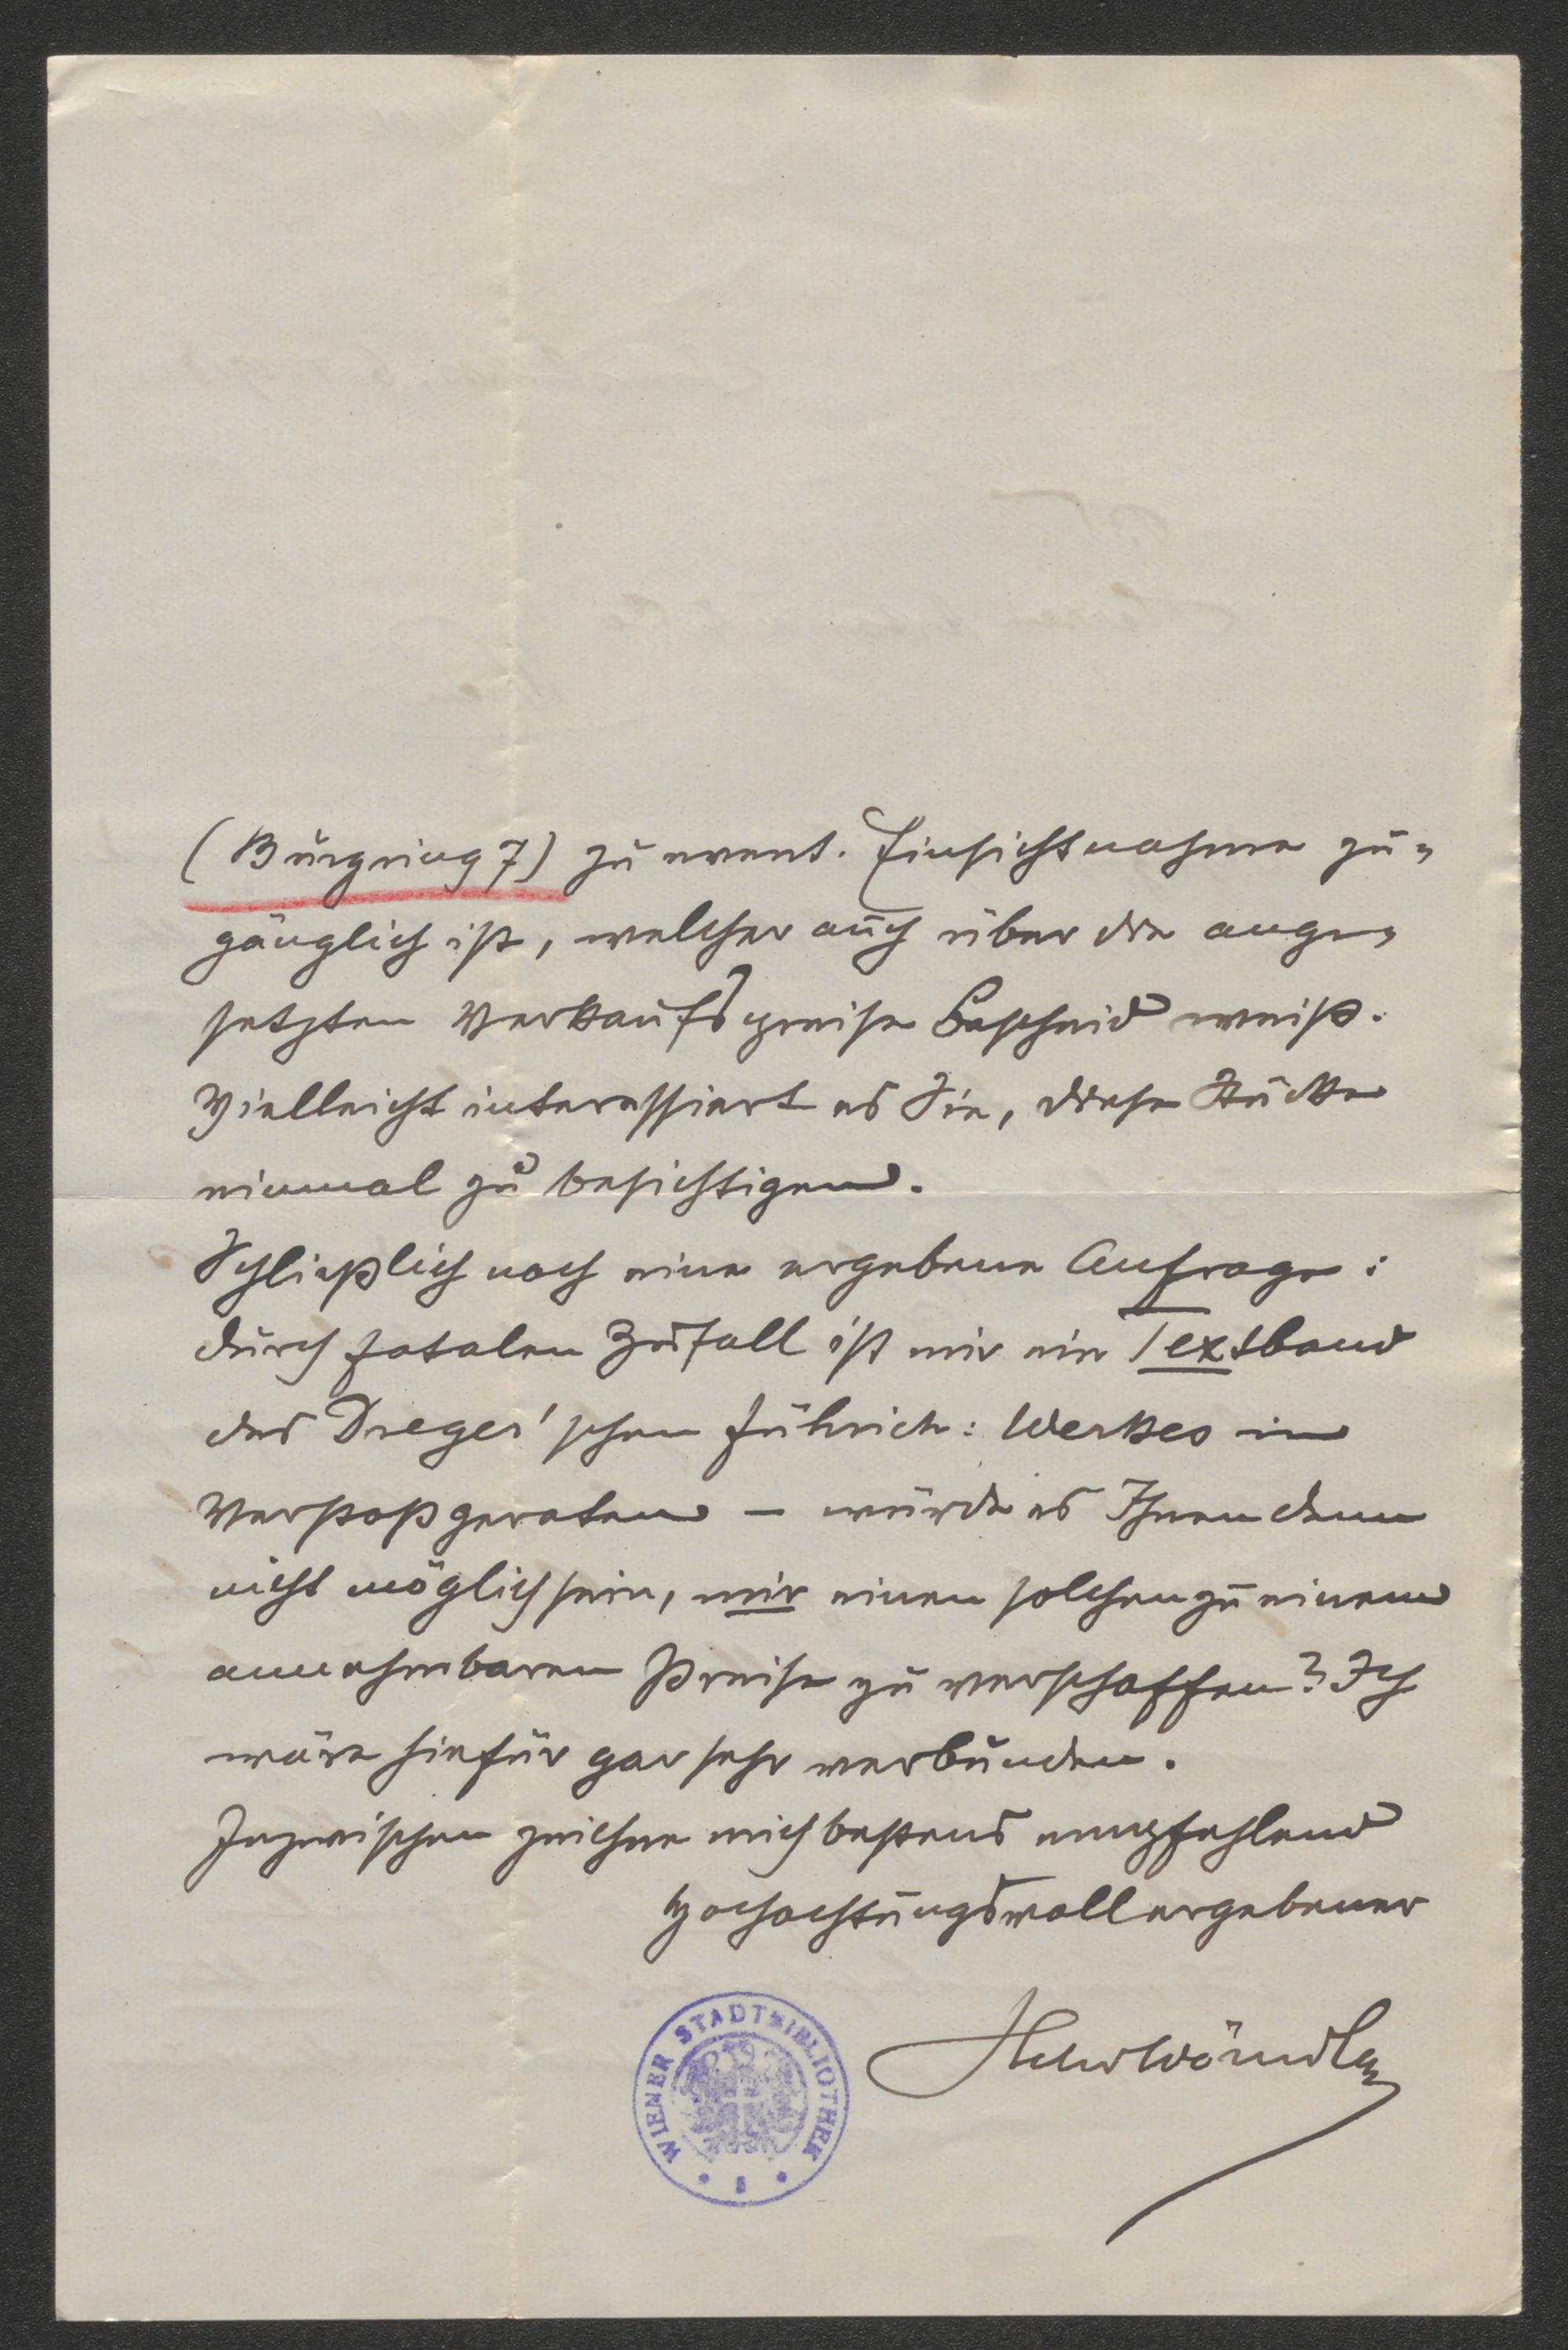 (Burgring 7) zu event. Einsichtnahme zu=
gänglich ist, welcher auch über die ange=
setzten Verkaufspreise Bescheid weiß.
Vielleicht interessiert es Sie, diese Stücke
einmal zu besichtigen.
Schließlich noch eine ergebene Anfrage:
durch fatalen Zufall ist mir ein Textband
des Dreger'schen Führich: Werkes in
Verstoß geraten – würde es Ihnen denn
nicht möglich sein, mir einen solchen zu einem
annehmbaren Preise zu verschaffen? Ich
wäre hiefür gar sehr verbunden.
Inzwischen zeichne mich bestens empfehlend
hochachtungsvoll ergebener
Wörndle
WIENER STADTBIBLIOTHEK